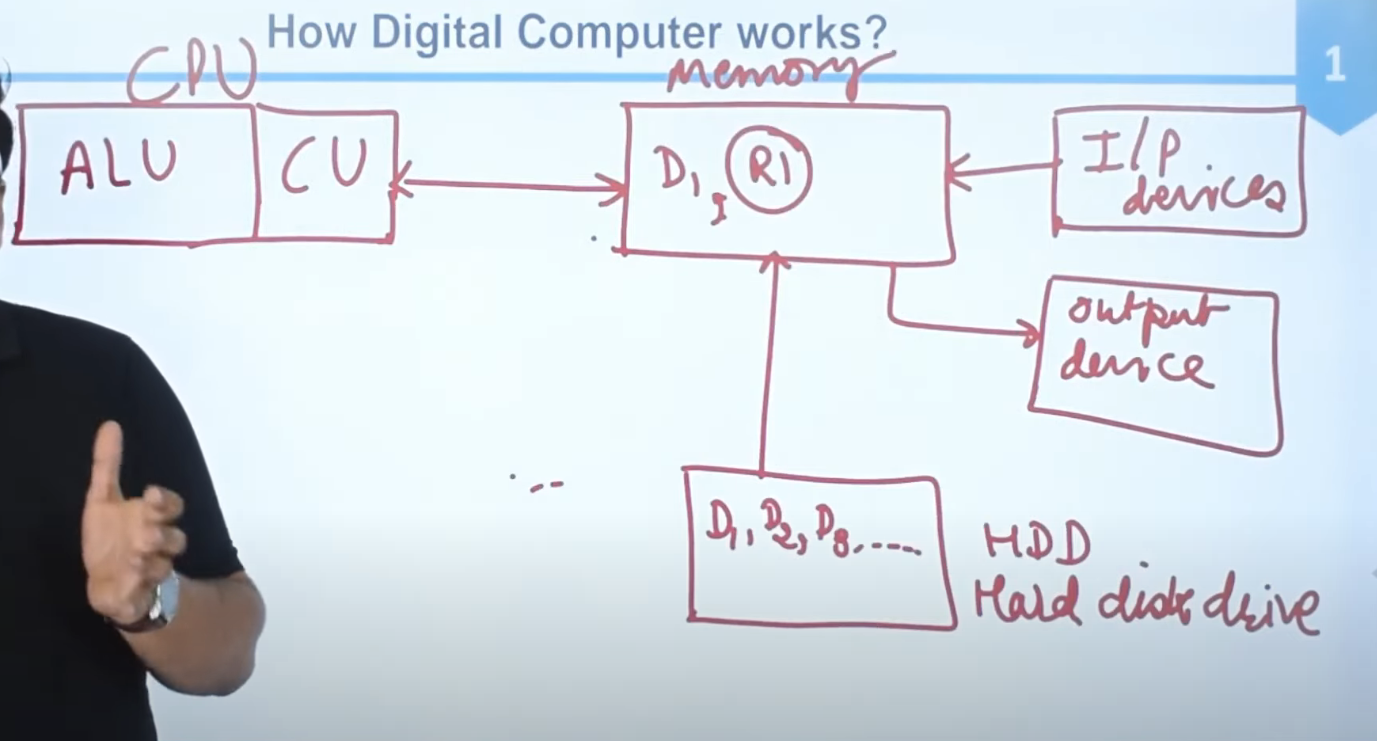 How Digital Computer works?
1
CPU
ALU
CU
Memory
D1, R1
I/P
devices
output
device
D1, D2, D3, ----
HDD
Hard disk drive